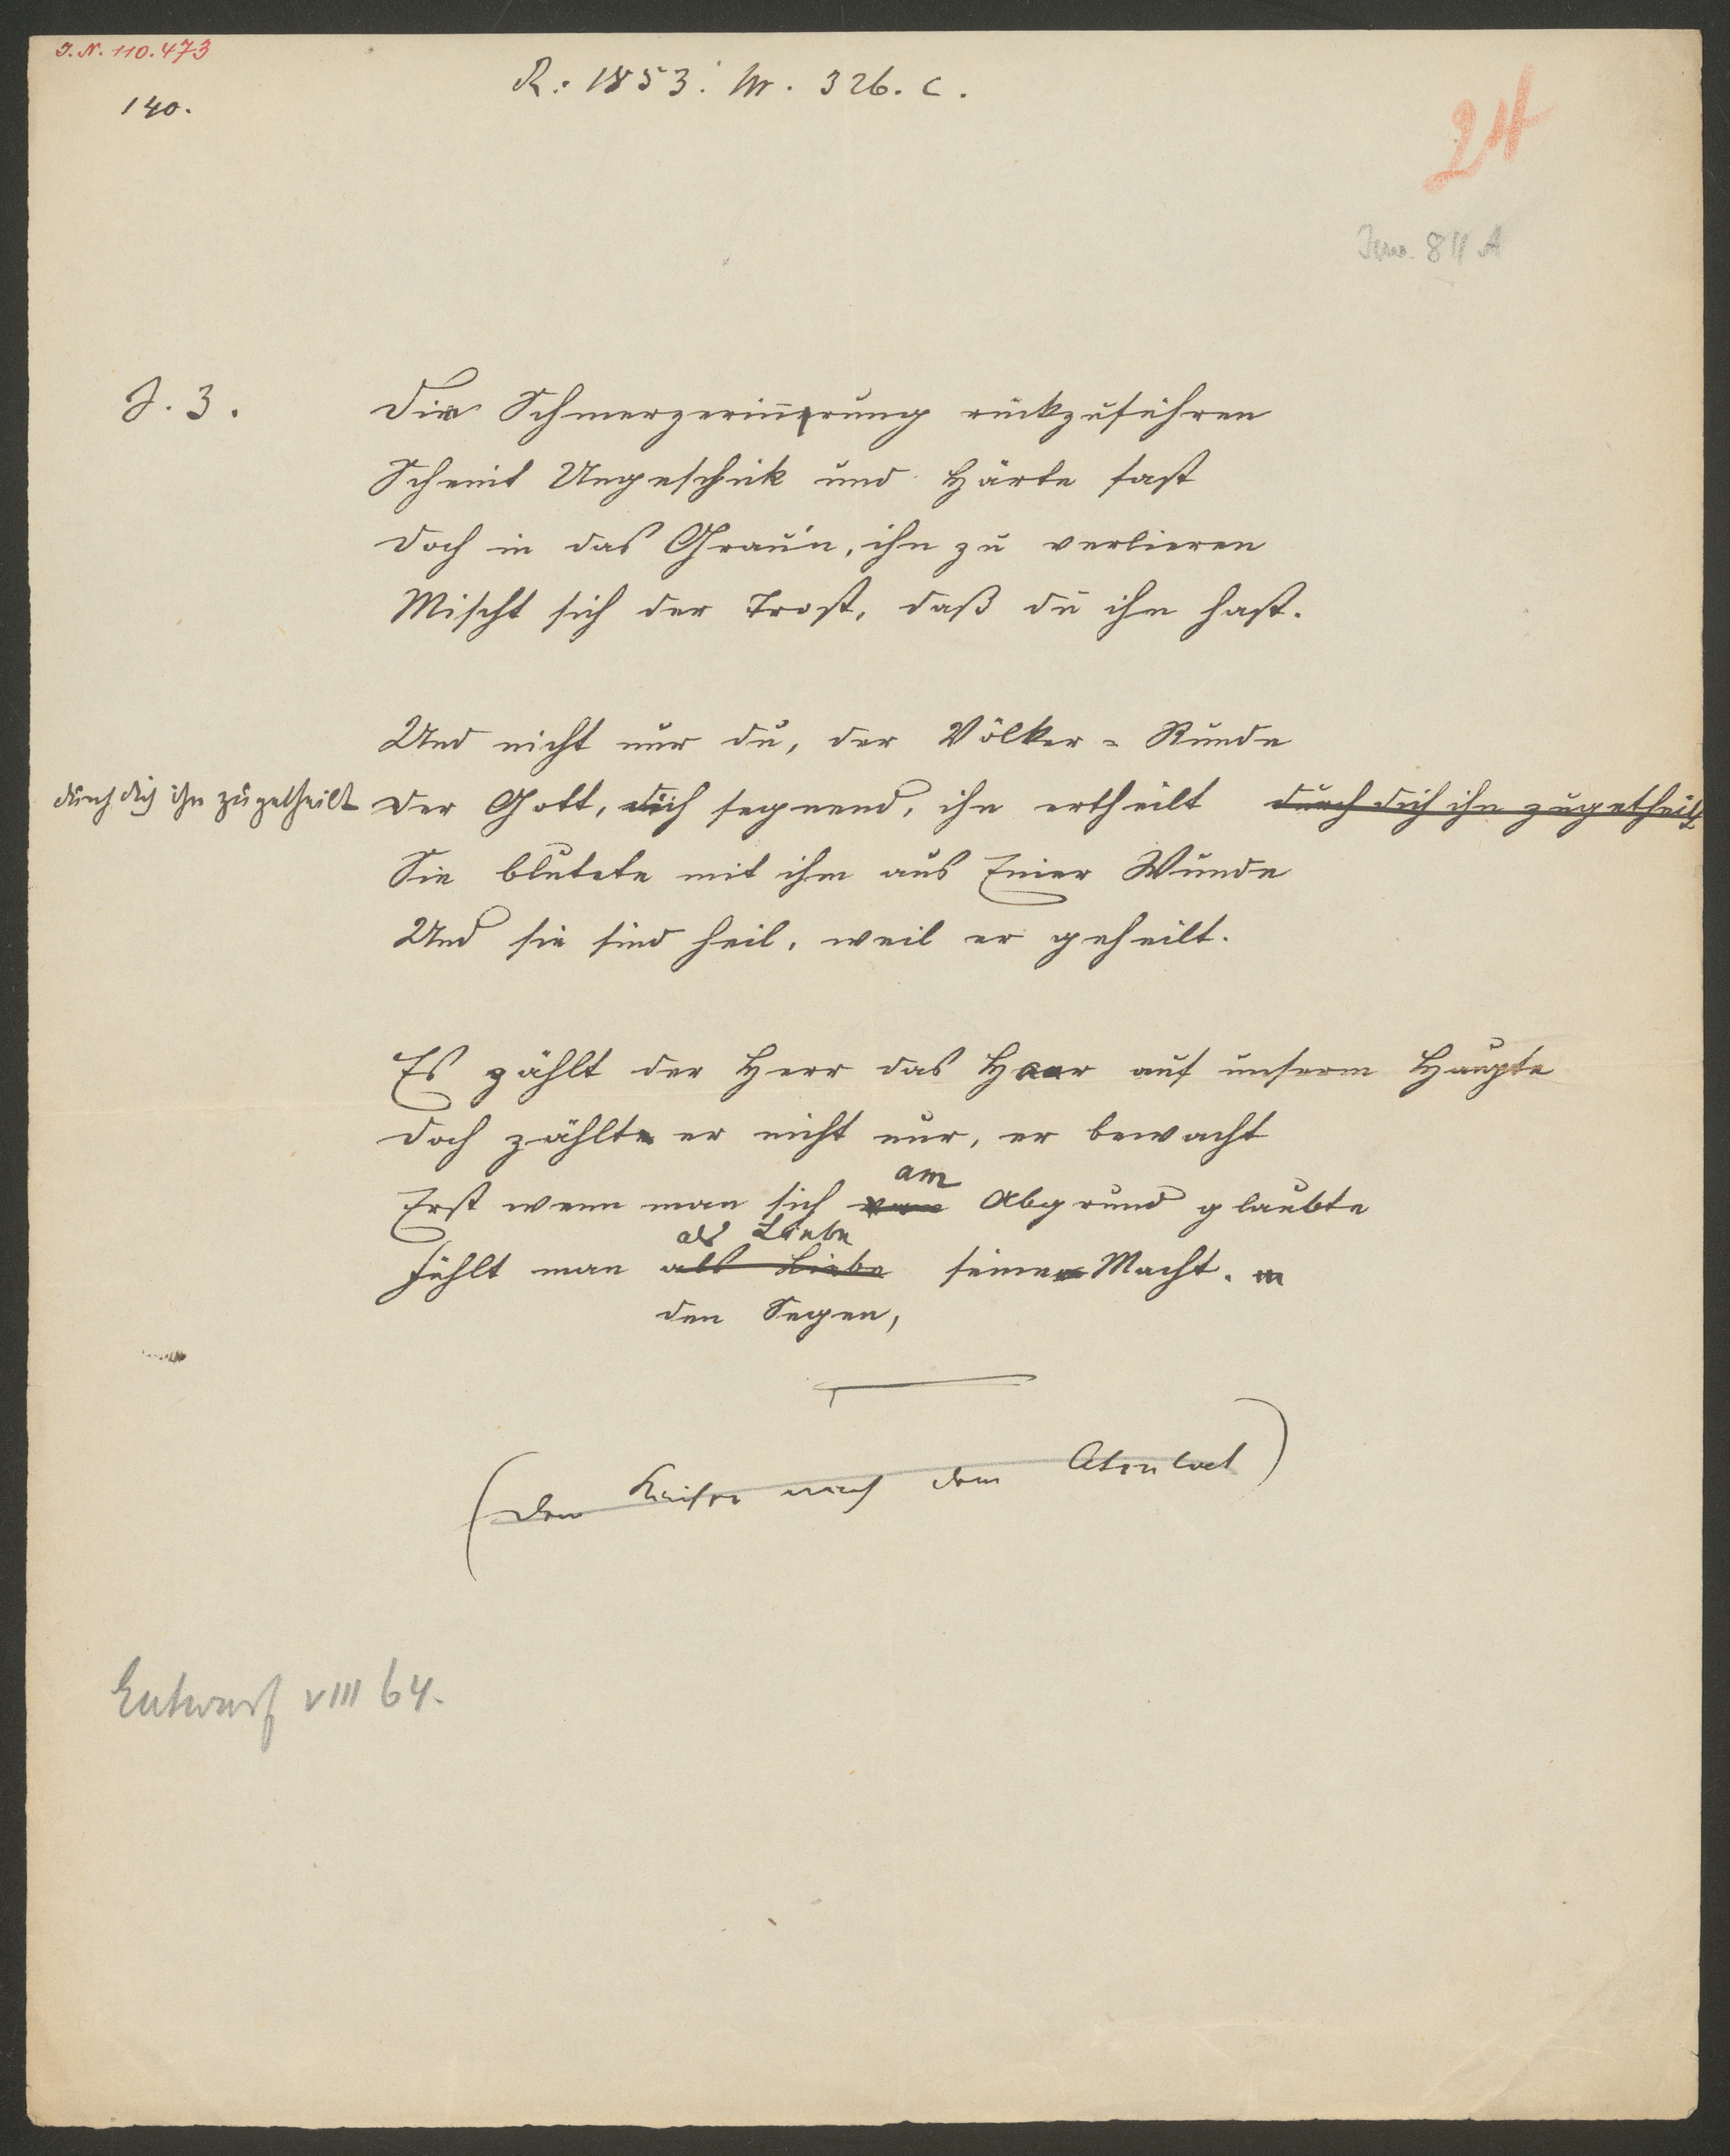 I. N. 110.473
140.
R: 1853. Nr. 326. c.
24
Inv. 811 A
J. 3.
Dir Schmerzerinnerung rückzuführen
Scheint Ungeschik und Härte fast
Doch in das Grau'n, ihn zu verlieren
Mischt sich der Trost, daß du ihn hast.
Und nicht nur du, der Völker-Runde
durch dich ihn zugetheilt Der Gott, dich segnend, ihn ertheilt durch dich ihn zugetheilt
Sie blutete mit ihm aus Einer Wunde
Und sie sind heil, weil er geheilt.
Es zählt der Herr das Haar auf unserm Haupte
Doch zählt er nicht nur, er bewacht
am
Erst wenn man sich Abgrund glaubte
als Liebe
Fühlt man als Liebe seine Macht.
den Segen,
(Dem Kaiser nach dem Attentat)
Entwurf VIII 64.